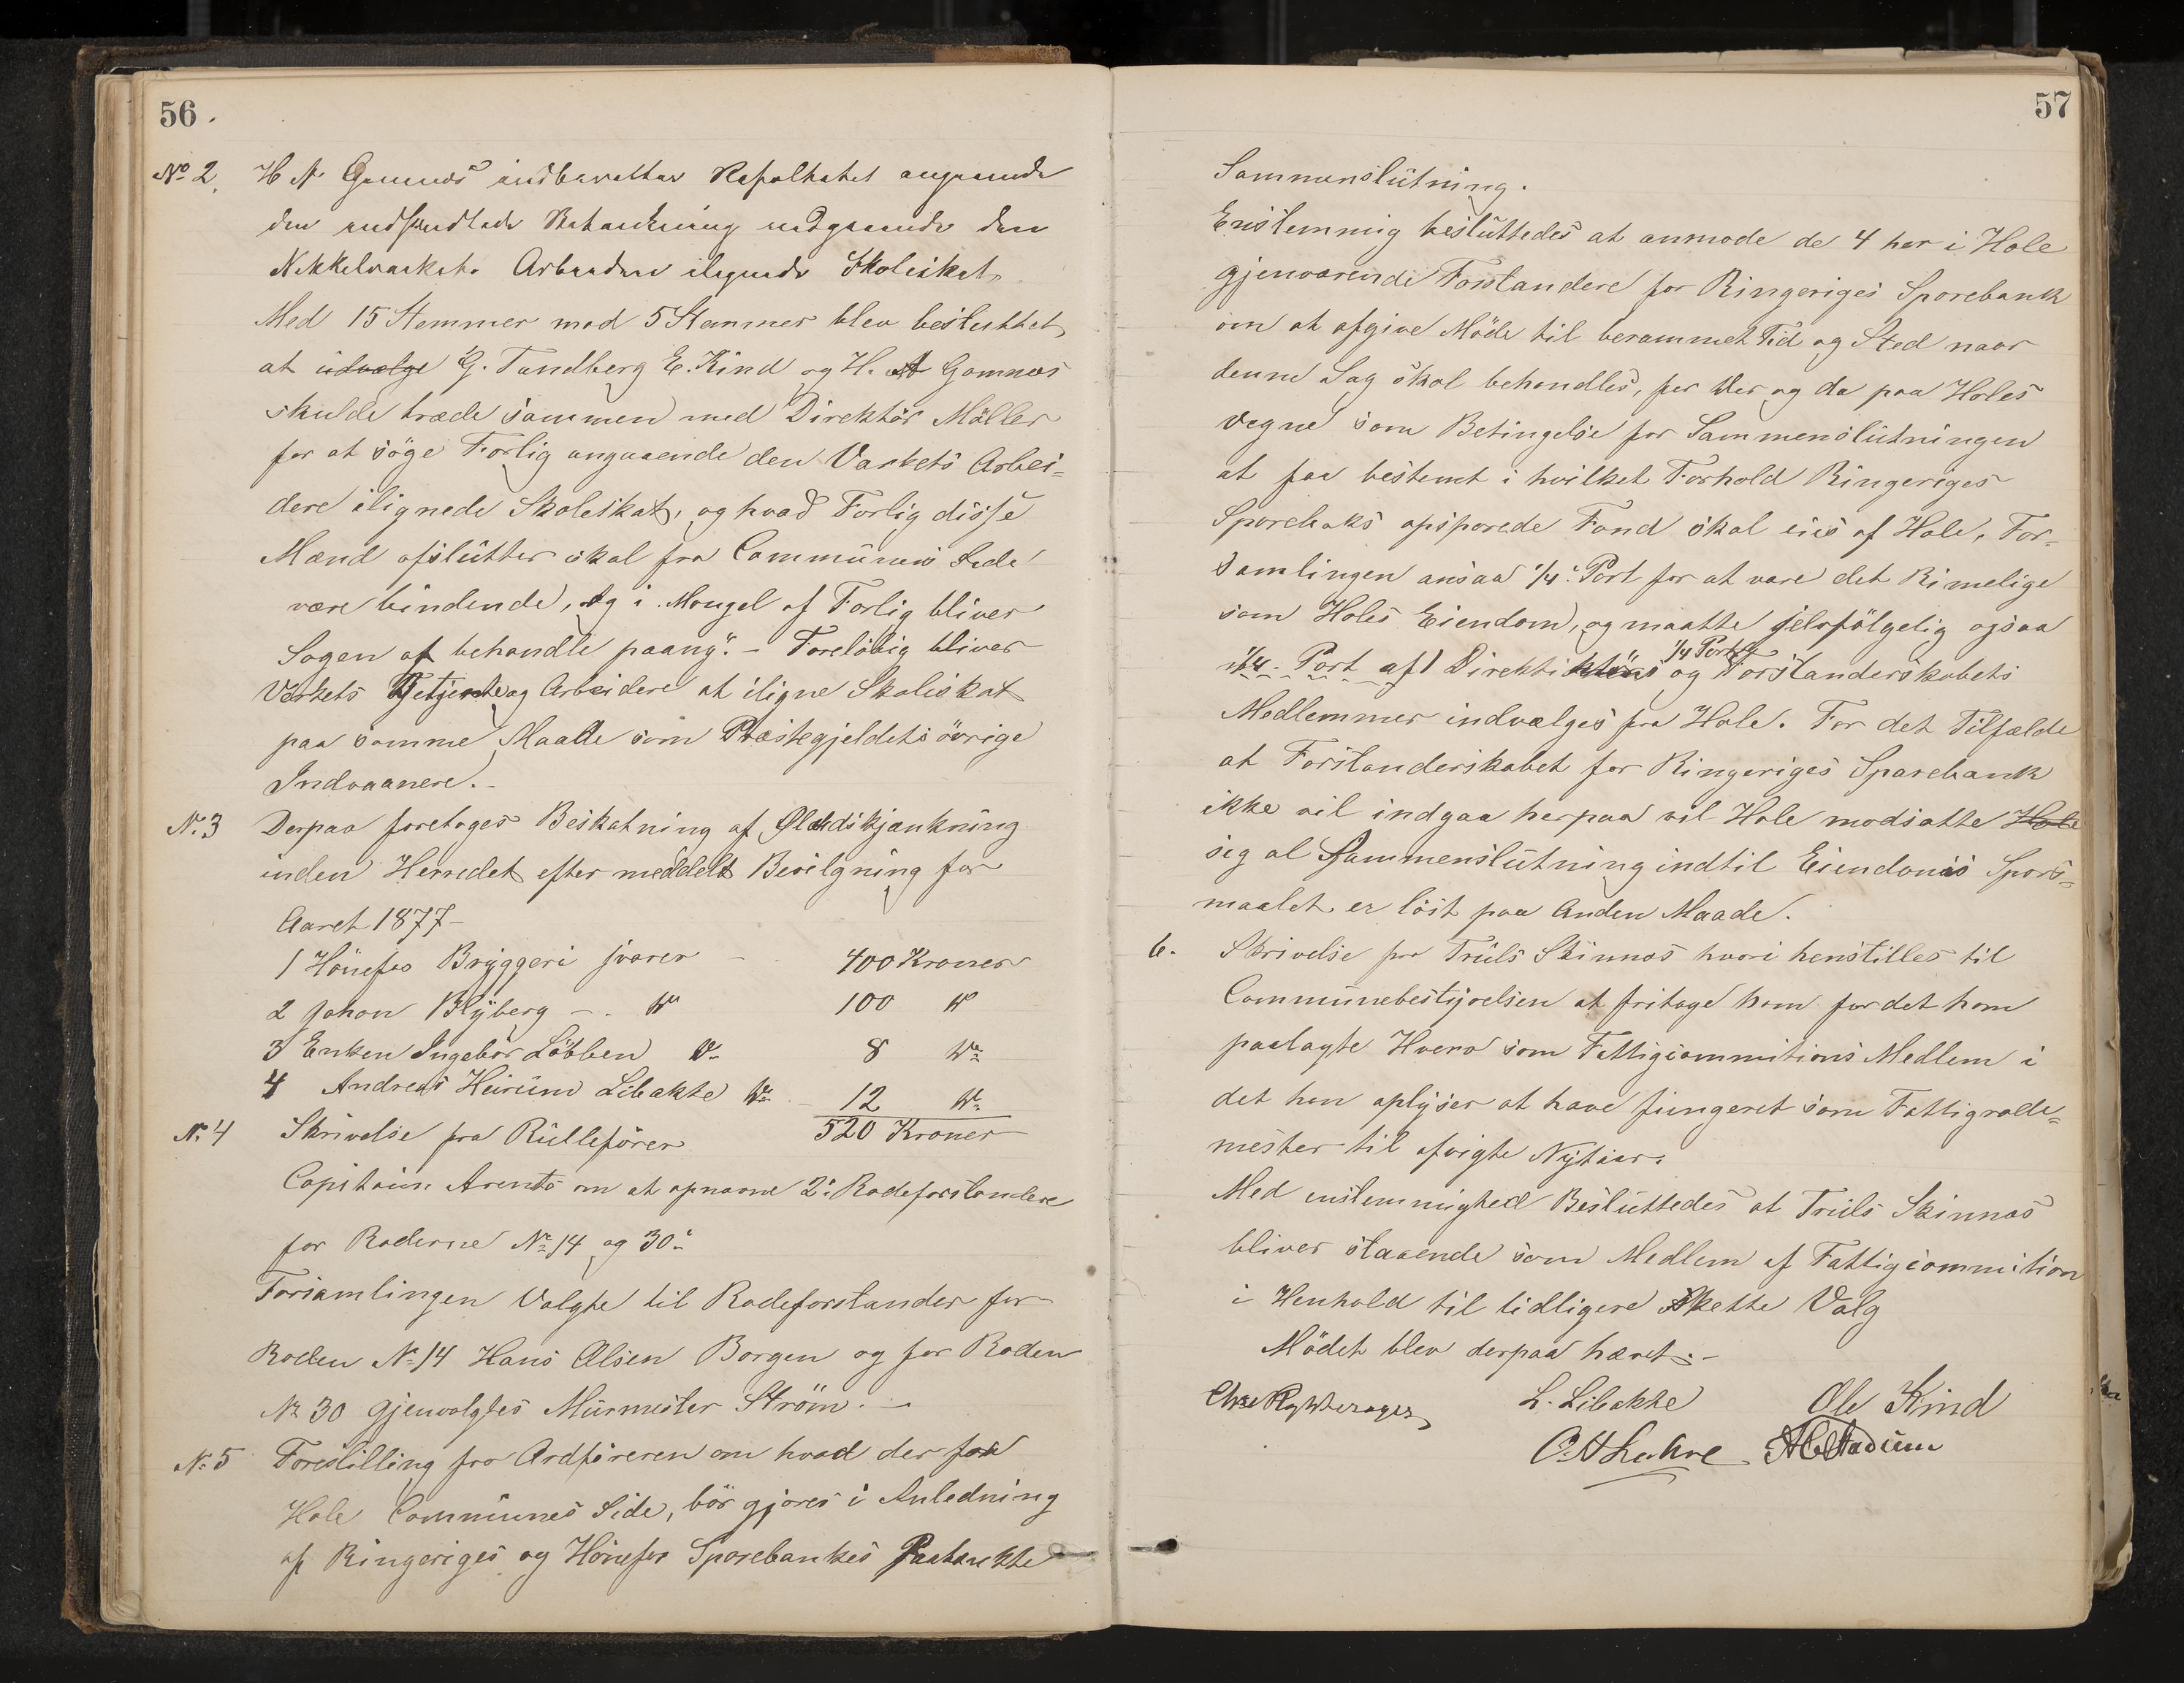 56.
No 2. H N Gomnæs indberetter Resultatet angaaende
den Behandling angaaende den
Nikkelværkets Arbeidere ilignede Skoleskat.
Med 15 Stemmer mod 5 Stemmer blev besluttet
at udvælge G. Tandberg E. Kind og H. N Gomnæs
skulde træde sammen med Direktör Möller
for at söge Forlig angaaende den Værkets Arbei-
dere ilignede Skoleskat, og hvad Forlig disse
Mænd afslutter skal fra Communens Side
være bindende, og i Mangel af Forlig bliver
Sagen at behandle paany. - Forelöbig bliver
Værkets Betjente og Arbeidere at iligne Skoleskat
paa samme Maade som Præstegjeldets övrige
Indvaanere. -
No. 3 Derpaa foretoges Beskatning af Øludskjænkning
inden Herredet efter meddelt Bevilgning for
Aaret 1877 -
1 Hönefos Bryggeri svarer - 400 Kroner
2 Johan Blyberg - do 100 do
3 Enken Ingebor Löbben do 8 do
4 Andreas Heirum Libakke do 12 do
520 Kroner
No. 4 Skrivelse fra Rullefører
Capitain Arents om at opnævne 2de Rodeforstandere
for Roderne No 14 og 30.
Forsamlingen Valgte til Rodeforstander for
Roden No 14 Hans Olsen Borgen og for Roden
No 30 gjenvalgtes Murmester Ström. -
No. 5 Forestilling fra Ordföreren om hvad der fra
Hole Communes Side, bör gjøres i Anledning
af Ringeriges og Hönefos Sparebankes Paatænkte
57
Sammenslutning.
Enstemmig besluttedes at anmode de 4 her i Hole
gjenværende Forstandere for Ringeriges Sparebank
om at afgive Möde til berammet Tid og Sted naar
denne Sag skal behandles, for der og da paa Holes
Vegne som Betingelse for Sammenslutningen
at faa bestemt i hvilket Forhold Ringeriges
Sparebaks opsparede Fond skal eies af Hole, For-
samlingen ansaa 1/4 Part for at være det Rimelige
som Holes Eiendom, og maatte selvfölgelig ogsaa
1/4 Part af
1/4 Part af Direktionens og Forstanderskabets
Medlemmer indvælges fra Hole. For det Tilfælde
at Forstanderskabet for Ringeriges Sparebank
ikke vil indgaa herpaa vil Hole modsætte Hole
sig al Sammenslutning indtil Eiendoms Spørs-
maalet er löst paa Anden Maade.
6. Skrivelse fra Truls Skinnæs hvori henstilles til
Communebestyrelsen at fritage ham for det ham
paalagte Hverv som Fattigcommitions Medlem i
det han oplyser at have fungeret som Fattigrode-
mester til afvigte Nytaar.
Med enstemmighed Besluttedes at Truls Skinnæs
bliver staaende som Medlem af Fattigcommition
i Henhold til tidligere Skette Valg
Mödet blev derpaa hævet. -
L. Libakke Ole Kind